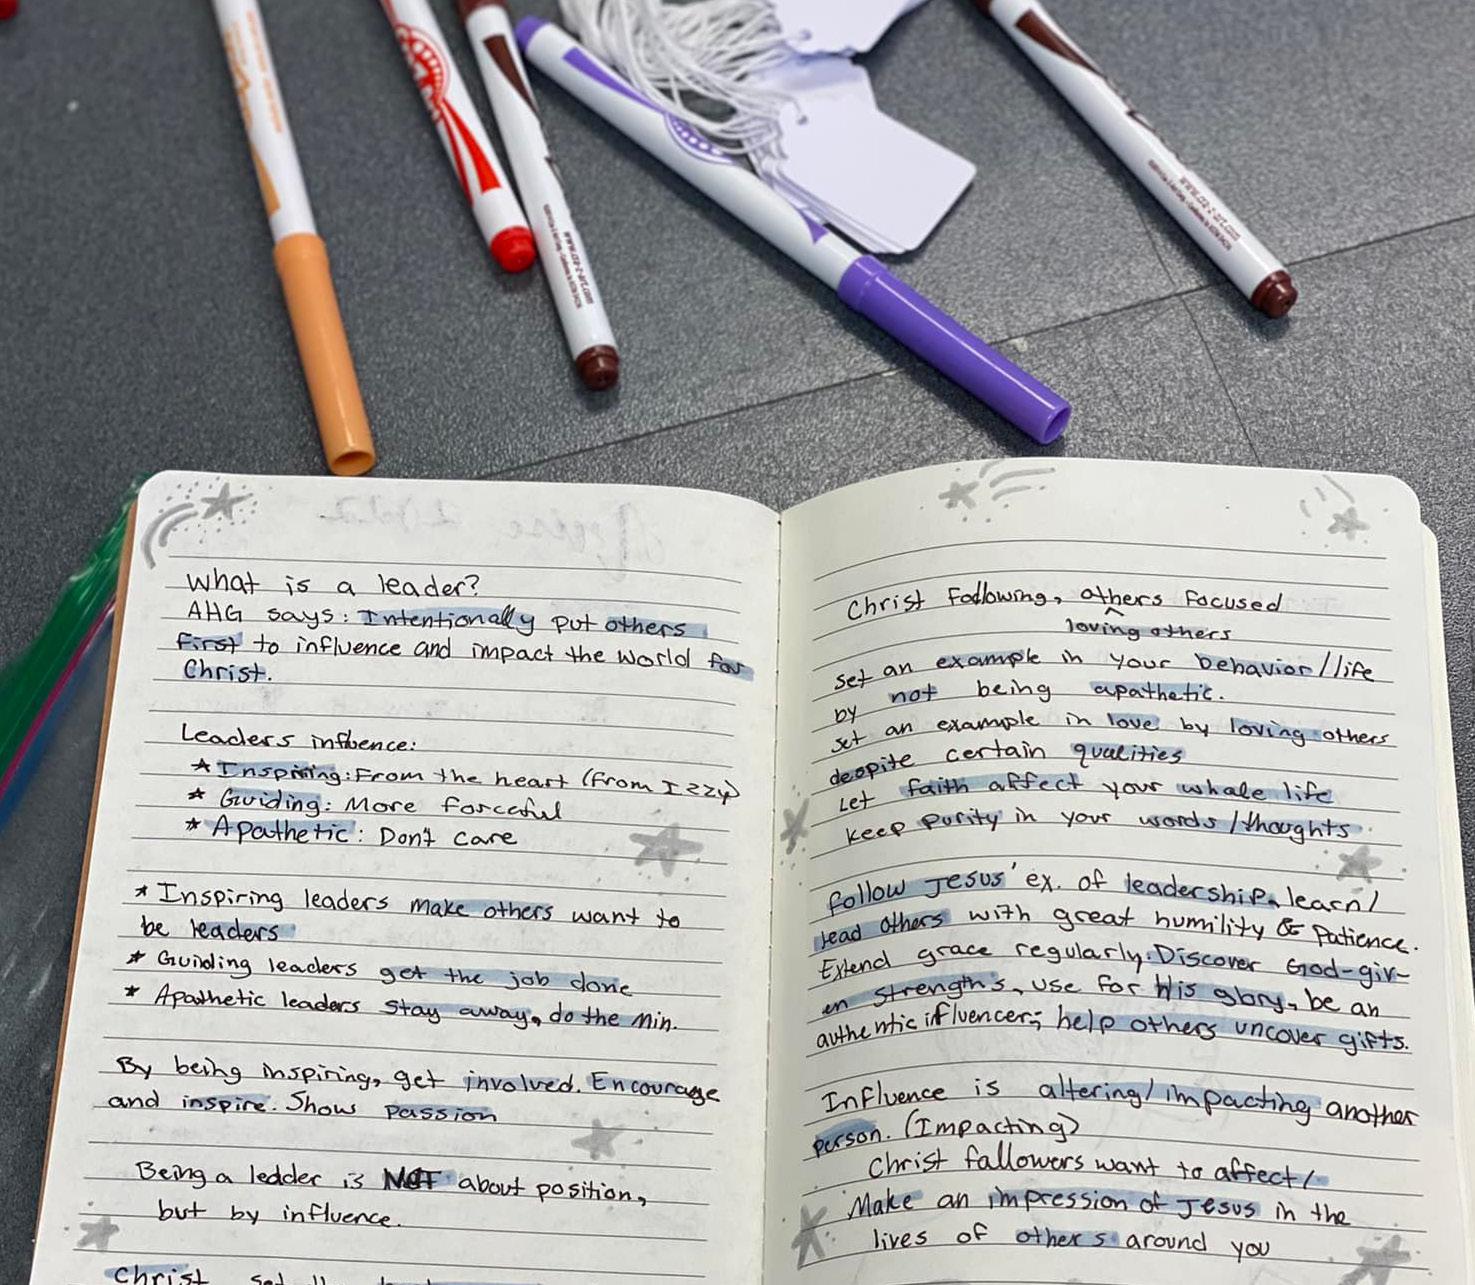 www.cra-z-art.com
www.cra-z-art.com
What is a leader?
AHG says: Intentionally put others
first to influence and impact the world for
Christ.
Leaders influence:
* Inspiring: From the heart (from Izzy)
* Guiding: More forceful
* Apathetic: Don't care
* Inspiring leaders make others want to
be leaders
* Guiding leaders get the job done
* Apathetic leaders stay away, do the min.
By being inspiring, get involved. Encourage
and inspire. Show passion
Being a ledder is NOT about position,
but by influence.
Christ
Christ Following, others Focused
^
loving others
set an example in your behavior//life
by not being apathetic.
set an example in love by loving others
despite certain qualities
Let faith affect your whole life
keep purity in your words/thoughts
follow Jesus' ex. of leadership, learn/
lead others with great humility & patience.
Extend grace regularly. Discover God-giv-
en strengths, use for His glory, be an
authentic ifluencer; help others uncover gifts.
Influence is altering/impacting another
person. (Impacting)
Christ fallowers want to affect/
Make an impression of Jesus in the
lives of others around you